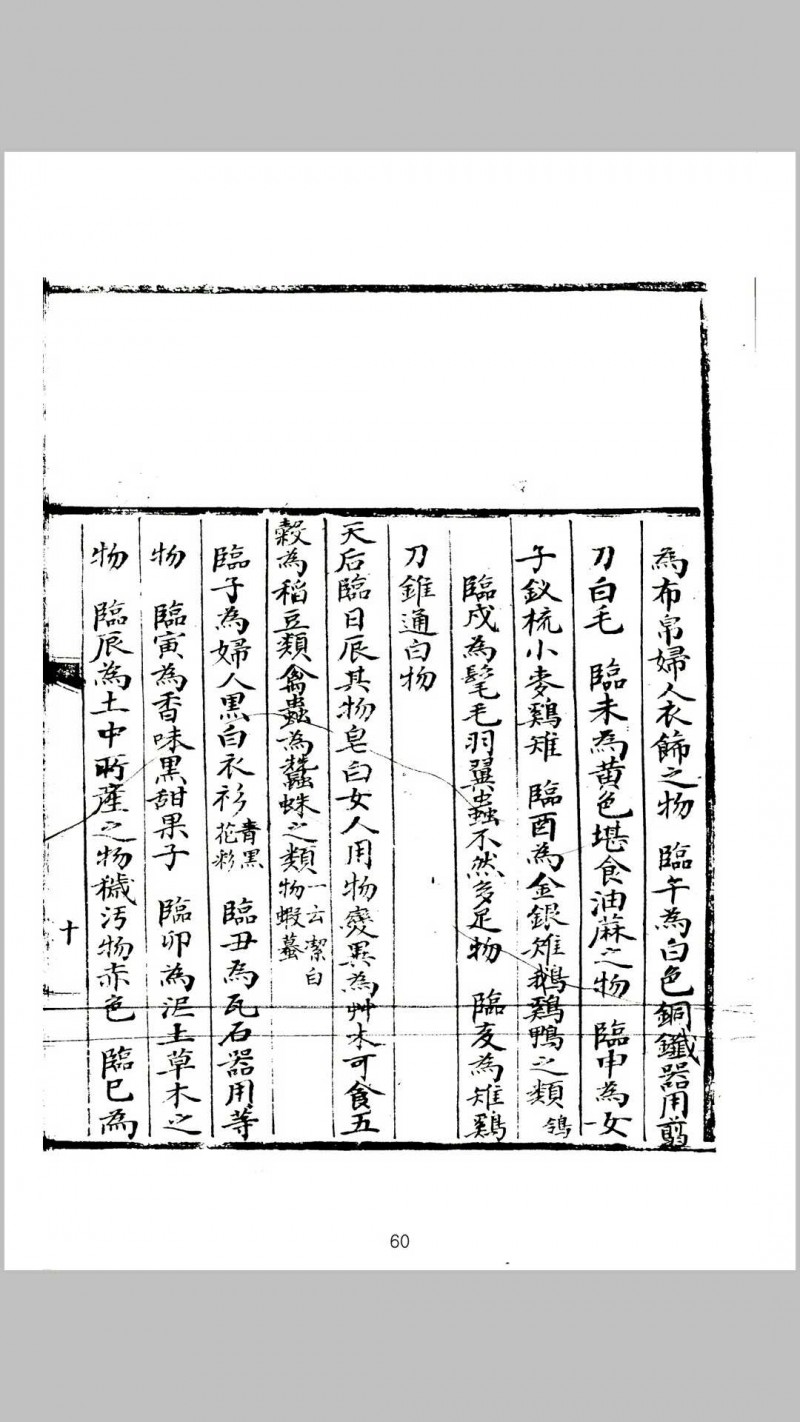 為布帛婦人衣飾之物　臨午為白色銅鐵器用剪
刀白毛　臨未為黃色堪食油蔴之物　臨申為女
子釵梳小麥鷄雉　臨酉為金銀雉鵝鷄鴨之類鴿
臨戌為髦毛羽翼蟲不然多足物　臨亥為雉鷄
刀錐通白物
天后臨日辰其物皂白女人用物變異為艸木可食五
穀為稻豆類禽蟲為蠶蛛之類一云潔白物蝦蟇
臨子為婦人黑白衣衫青黑花彩　臨丑為瓦石器用等
物　臨寅為香味黑甜果子　臨卯為泥土草木之
物　臨辰為土中所產之物穢污物赤色　臨巳為
十
60